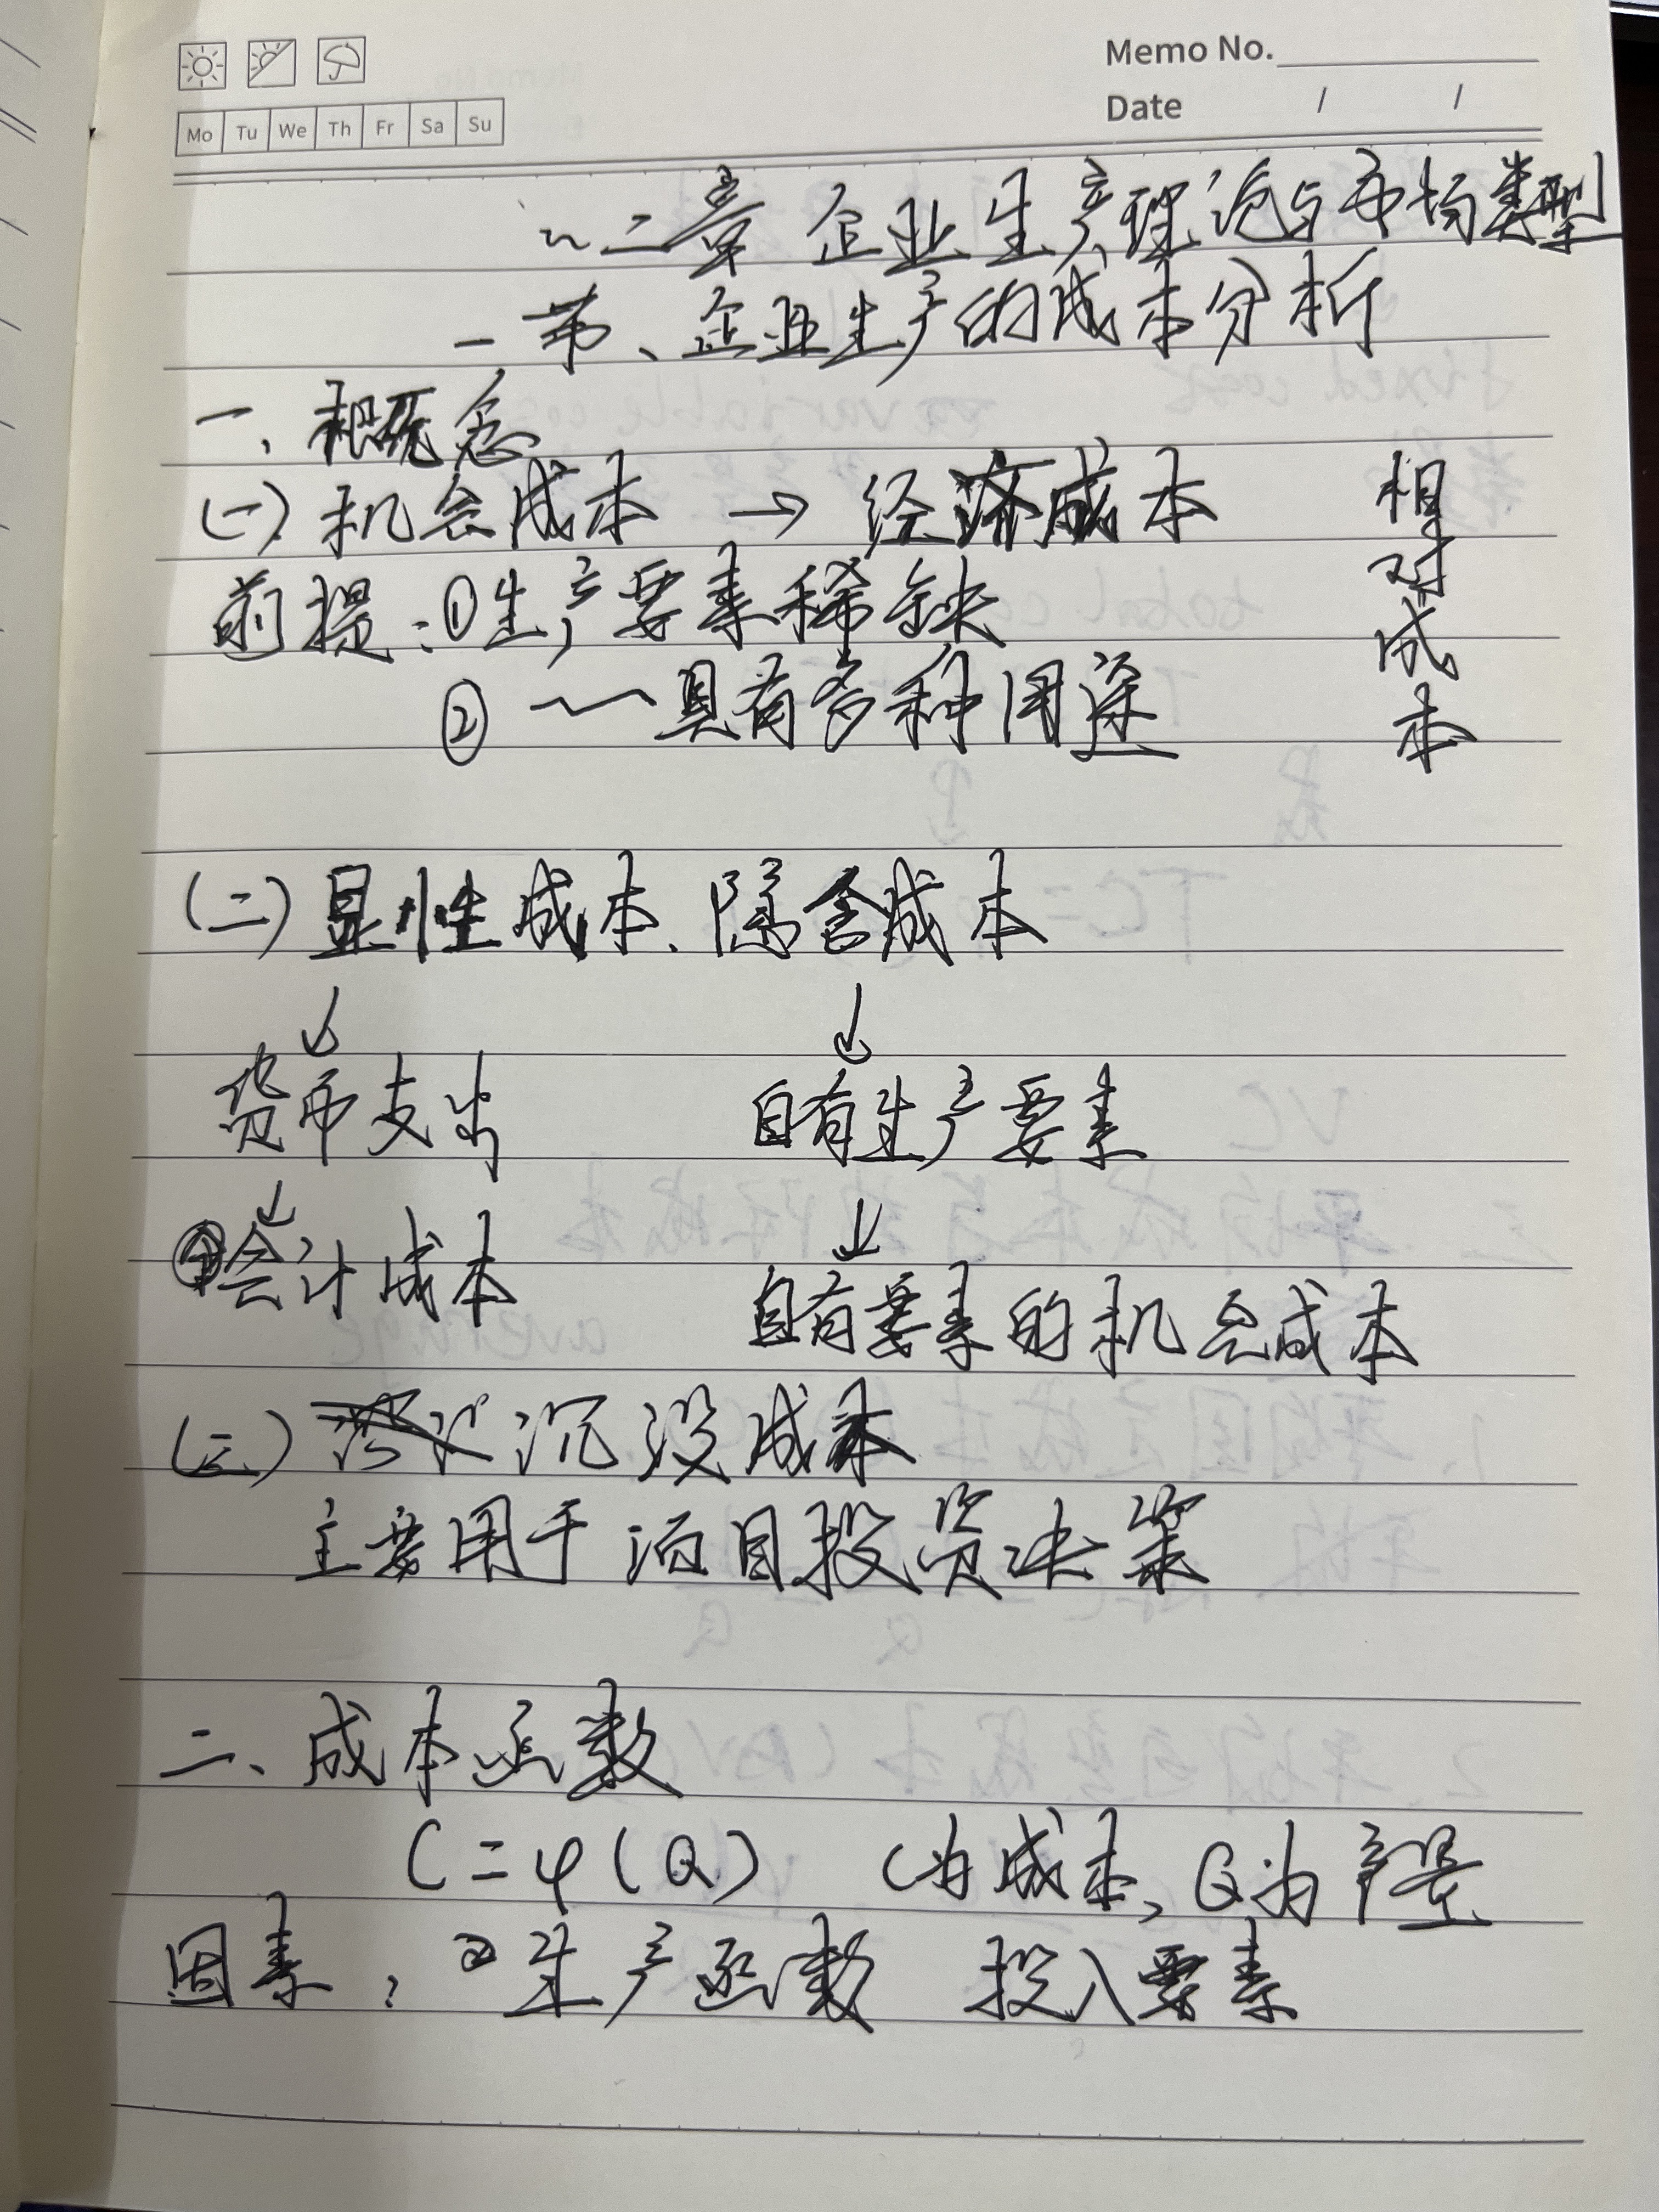 Memo No.
Date / /
Mo Tu We Th Fr Sa Su
二章 企业生产理论与市场类型
一节、企业生产的成本分析
一、概念
(一) 机会成本 → 经济成本
相对成本
前提：①生产要素稀缺
② ～具有多种用途
(二) 显性成本、隐含成本
↓ ↓
货币支出 自有生产要素
↓ ↓
会计成本 自有要素的机会成本
(三) 沉没成本
主要用于项目投资决策
二、成本函数
C=φ(Q) C为成本，Q为产量
因素： 生产函数 投入要素